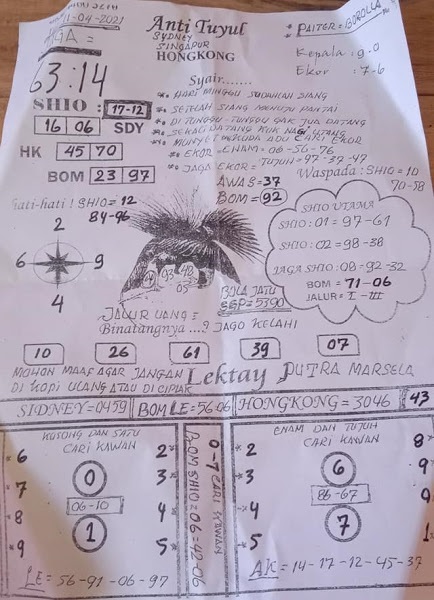 11-04-2021
Anti Tuyul
SYDNEY
SINGAPUR
HONGKONG
63:14
Kepala : 9-0
Ekor : 7-6
Syair.......
HARI MINGGU SUDAHLAH SIANG
SETELAH SIANG MENUJU PANTAI
DI TUNGGU-TUNGGU GAK JUA DATANG
SEKALI DATANG
EKOR = ENAM = 06-56-76
JAGA EKOR = TUJUH = 97-37-47
SHIO : 17-12
16 06 SDY
HK 45 70
BOM 23 97
AWAS = 37
BOM = 92
Waspada : SHIO = 10
70-58
Hati-hati ! SHIO = 12
84-96
2
6 9
4
SHIO UTAMA
SHIO : 01 = 97-61
SHIO : 02 = 98-38
JAGA SHIO : 08-92-32
BOM = 71-06
JALUR = I - III
BOLA JATU
SGP = 5390
JALUR UANG =
Binatangnya ...? JAGO KELAHI
10 26 61 39 07
MOHON MAAF AGAR JANGAN
DI KOPI ULANG ATAU DI CIPLAK
Lektay PUTRA MARSELA
SIDNEY = 0459 BOM LE = 56 06 HONGKONG = 3046 43
KOSONG DAN SATU
CARI KAWAN
*6 2*
0
*7 3*
06-10
*8 4*
1
*9 5*
LE = 56-91-06-97
0-7 CARI KAWAN
BOM SHIO = 06 = 42-06
ENAM DAN TUJUH
CARI KAWAN
*2 8*
6
*3 9
86-67
*4 0
7
*5 1
AK = 14-17-12-45-37